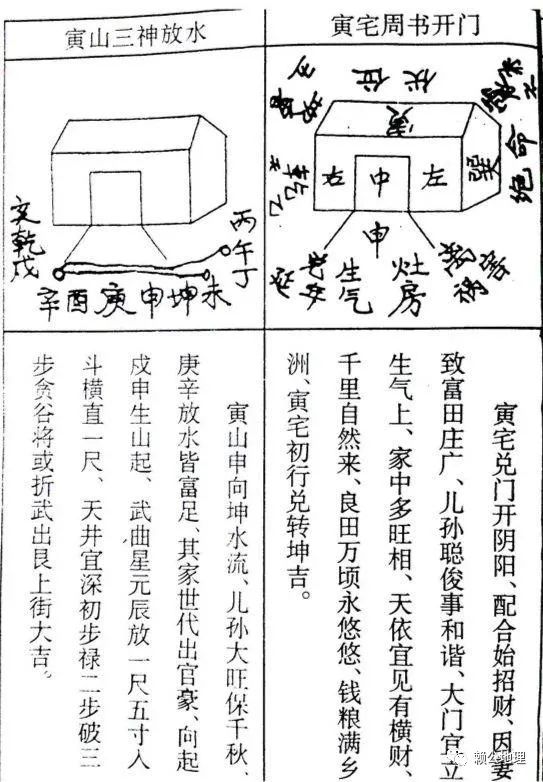 寅宅周书开门
伏位
寅
右 中 左
巽
绝命
申
生气
灶房
祸害
寅宅兑门开阴阳、配合始招财、因妻
致富田庄广、儿孙聪俊事和谐、大门宜立
生气上、家中多旺相、天依宜见有横财、
千里自然来、良田万顷永悠悠、钱粮满乡
洲、寅宅初行兑转坤吉。
寅山三神放水
丙午丁
乾戌
辛酉庚申坤未
寅山申向坤水流、儿孙大旺保千秋、
庚辛放水皆富足、其家世代出官豪、向起
戍申生山起、武曲星元辰放一尺五寸入
斗横直一尺、天井宜深初步禄二步破三
步贪谷将或折武出艮上街大吉。
赖公地理